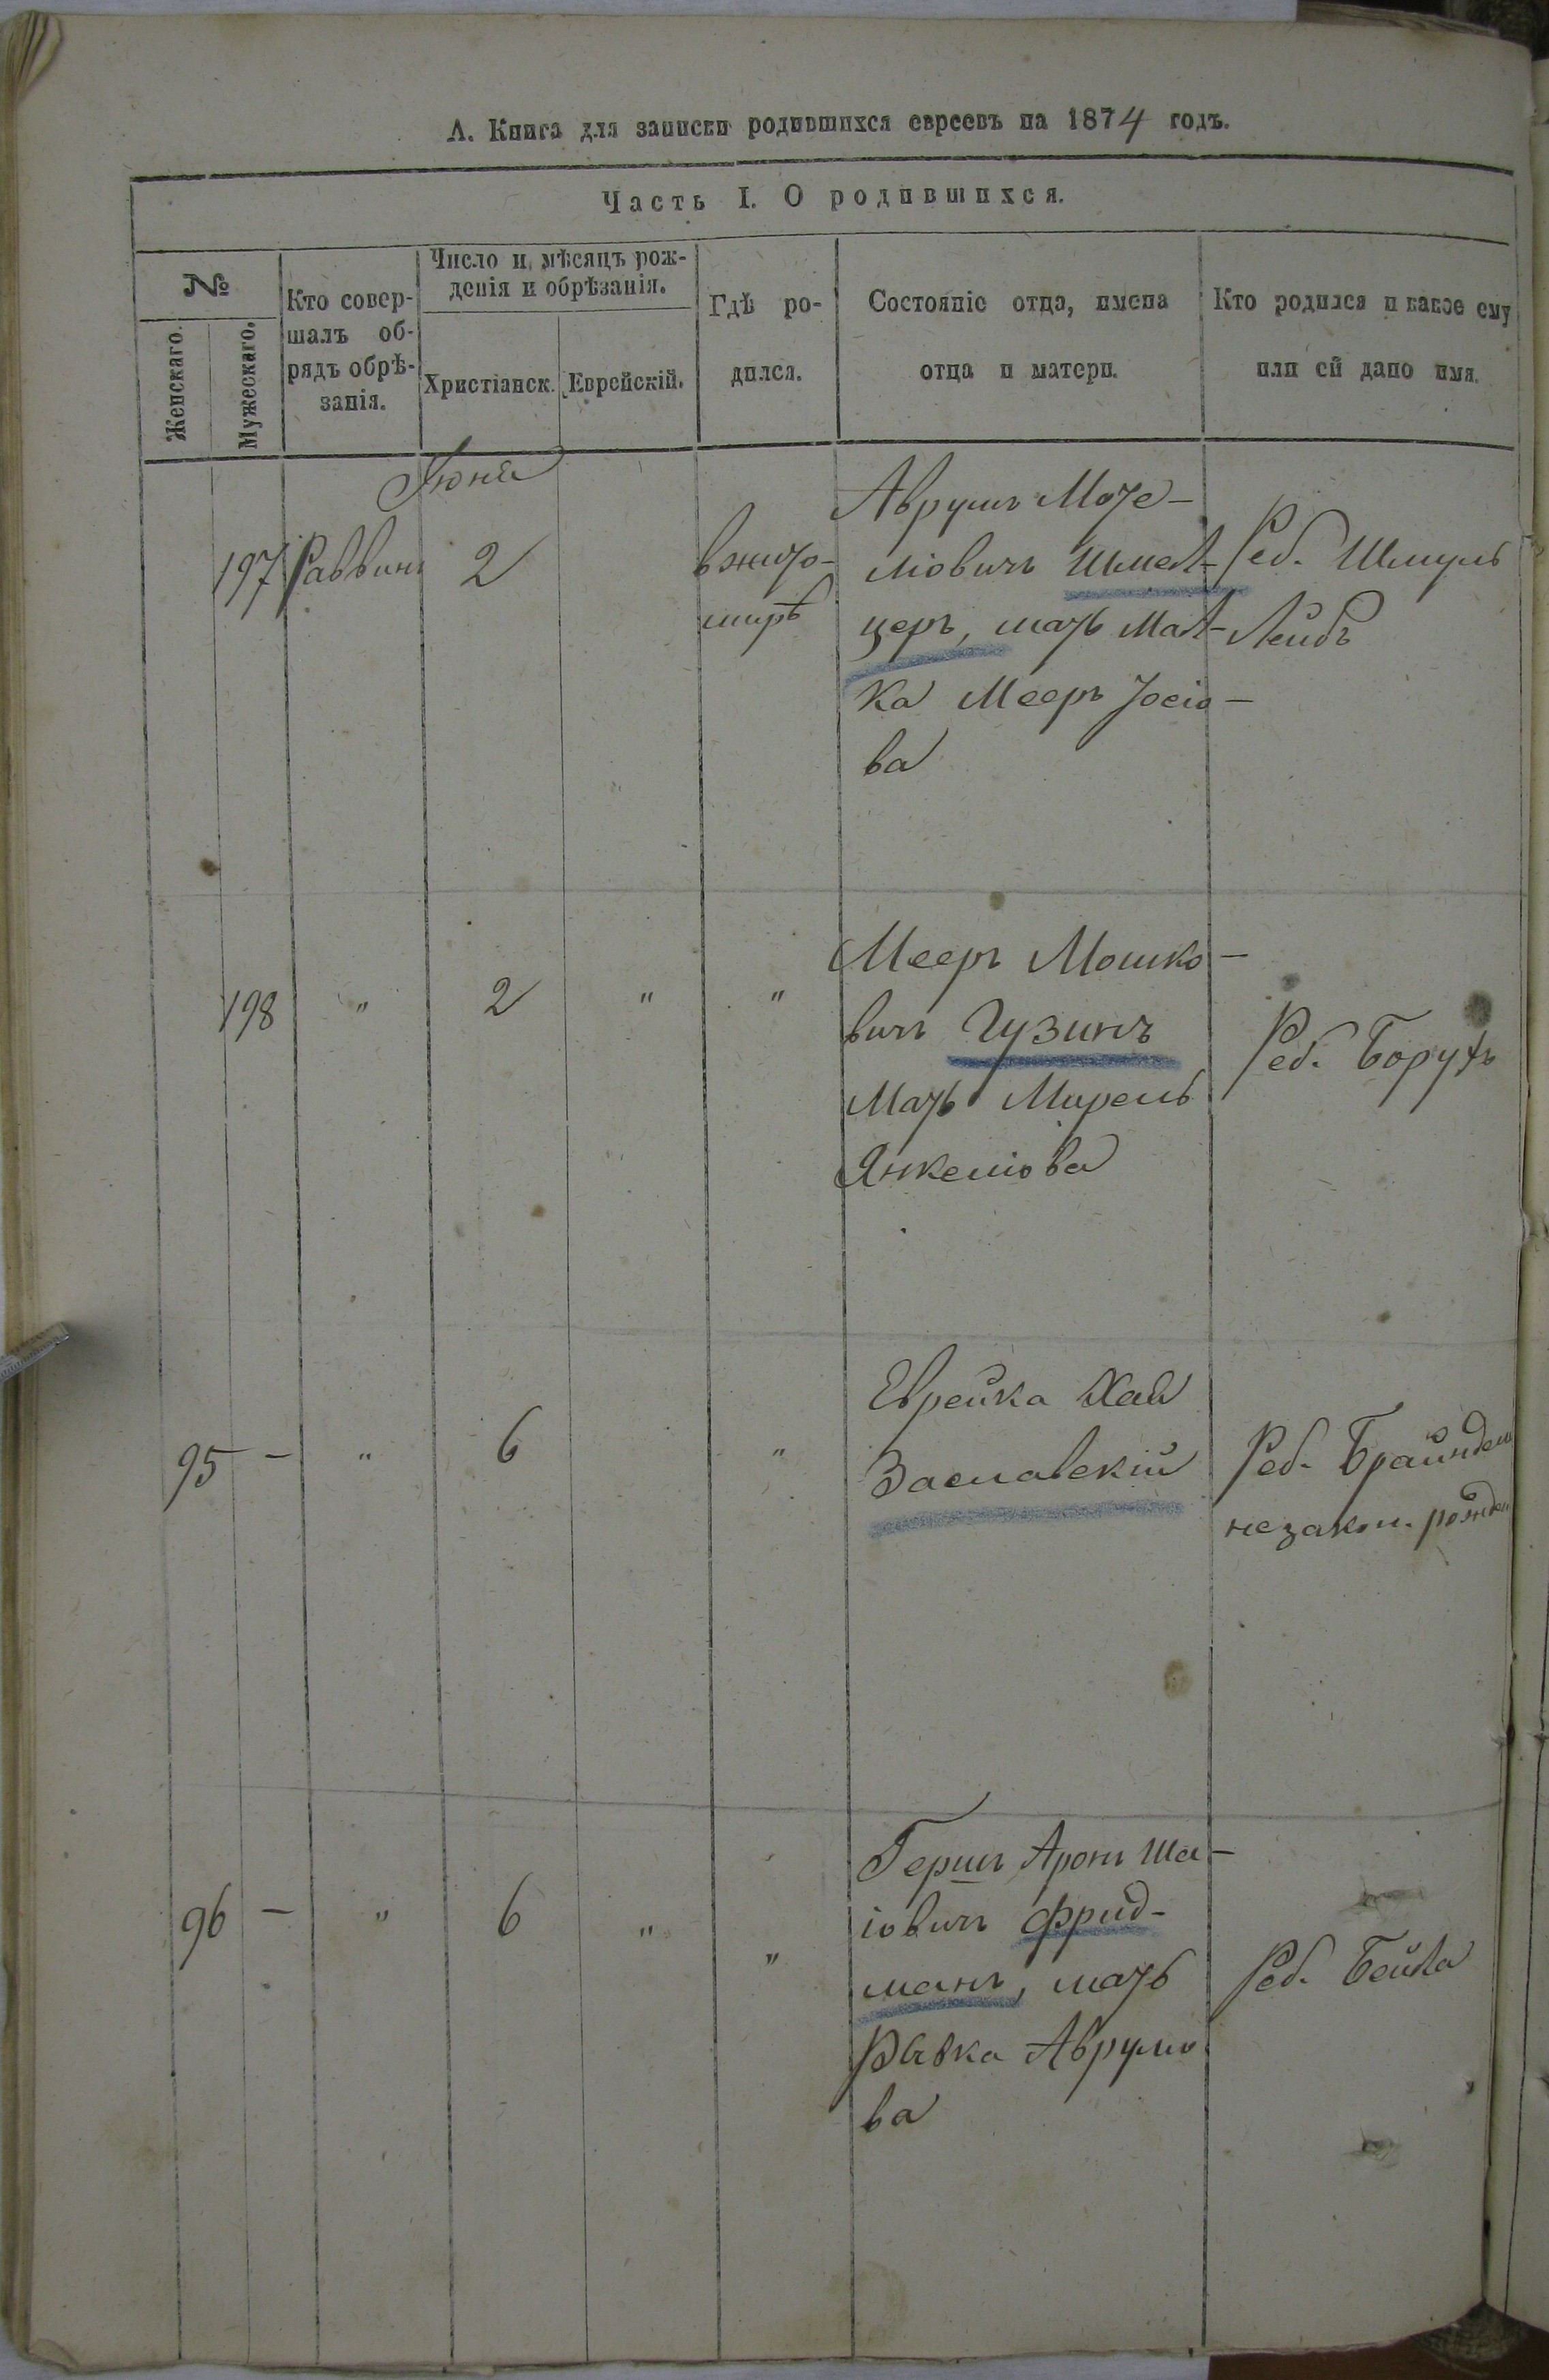 А. Книга для записки родившихся евреевъ на 1874 годъ.
Часть I. О родившихся.
№
Женскаго.
Мужескаго.
Кто совер-
шалъ об-
рядъ обрѣ-
занія.
Число и мѣсяцъ рож-
денія и обрѣзанія.
Христіанск.
Еврейскій.
Гдѣ ро-
дился.
Состояніе отца, имена
отца и матери.
Кто родился и какое ему
или ей дано имя.
Іюня
197
Раввинъ
2
в жито-
мирѣ
Аврумъ Моте-
ліовичъ Шмел-
церъ, мать Мал-
ка Мееръ Іосіо-
ва
Реб. Шмуль
Лейбъ
198
"
2
"
"
Мееръ Мошко-
вичъ Гузинъ
Мать Мирель
Янкеліова
Реб. Борухъ
95
-
"
6
"
Еврейка Хая
Заславскій
Реб. Брайндель
незакон. рожден
96
-
"
6
"
"
Гершъ Аронъ Ша-
іовичъ Фрид-
манъ, мать
Рывка Аврумо
ва
Реб. Бейла